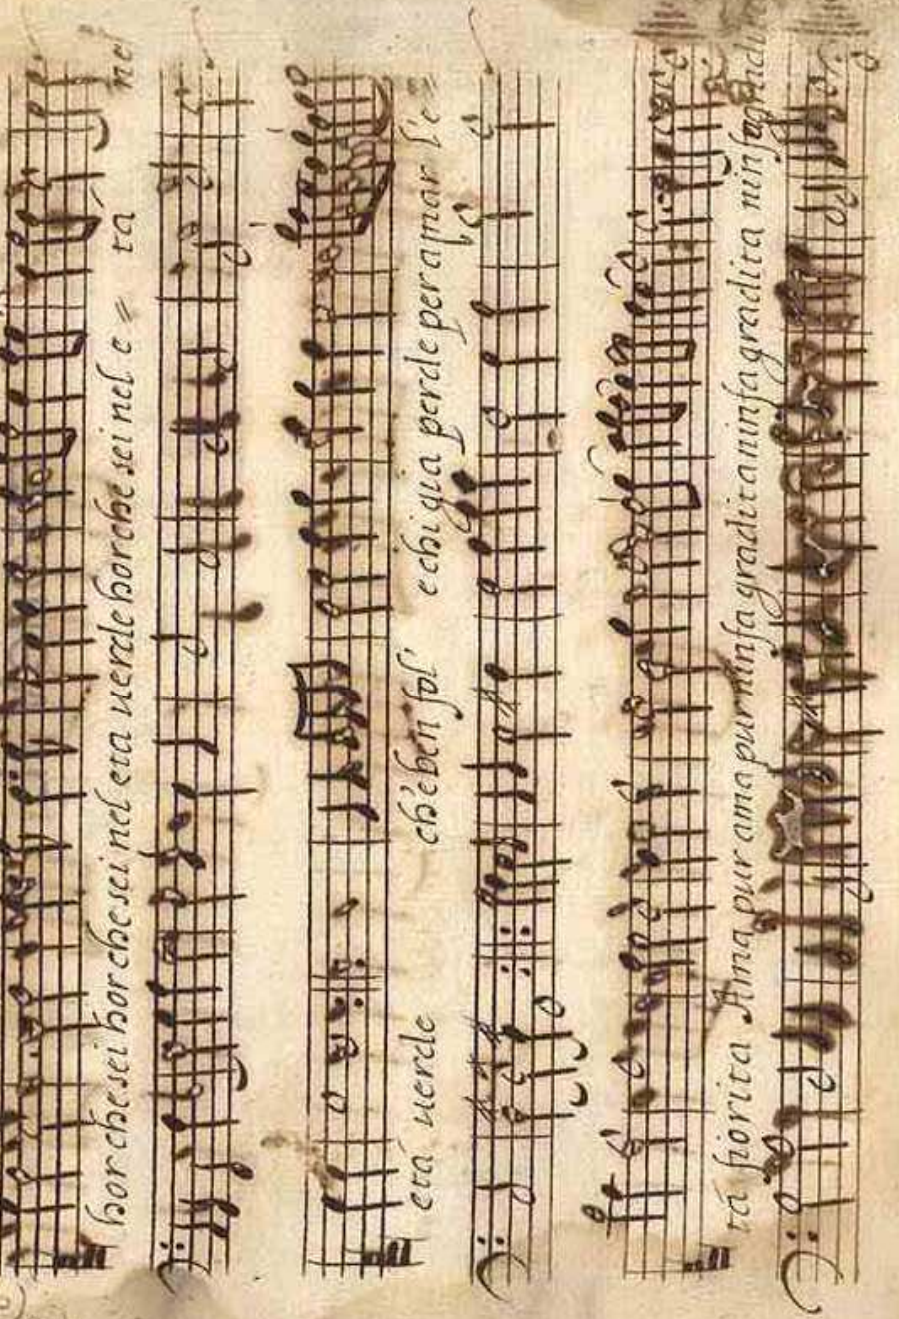 hor che sei hor che sei nel età uerde hor che sei nel e = tà nel
età uerde ch'e ben fol' e chi qua perde per amar l'e =
tà fiorita Ama pur ama pur ninfa gradita ninfa gradita ninfa